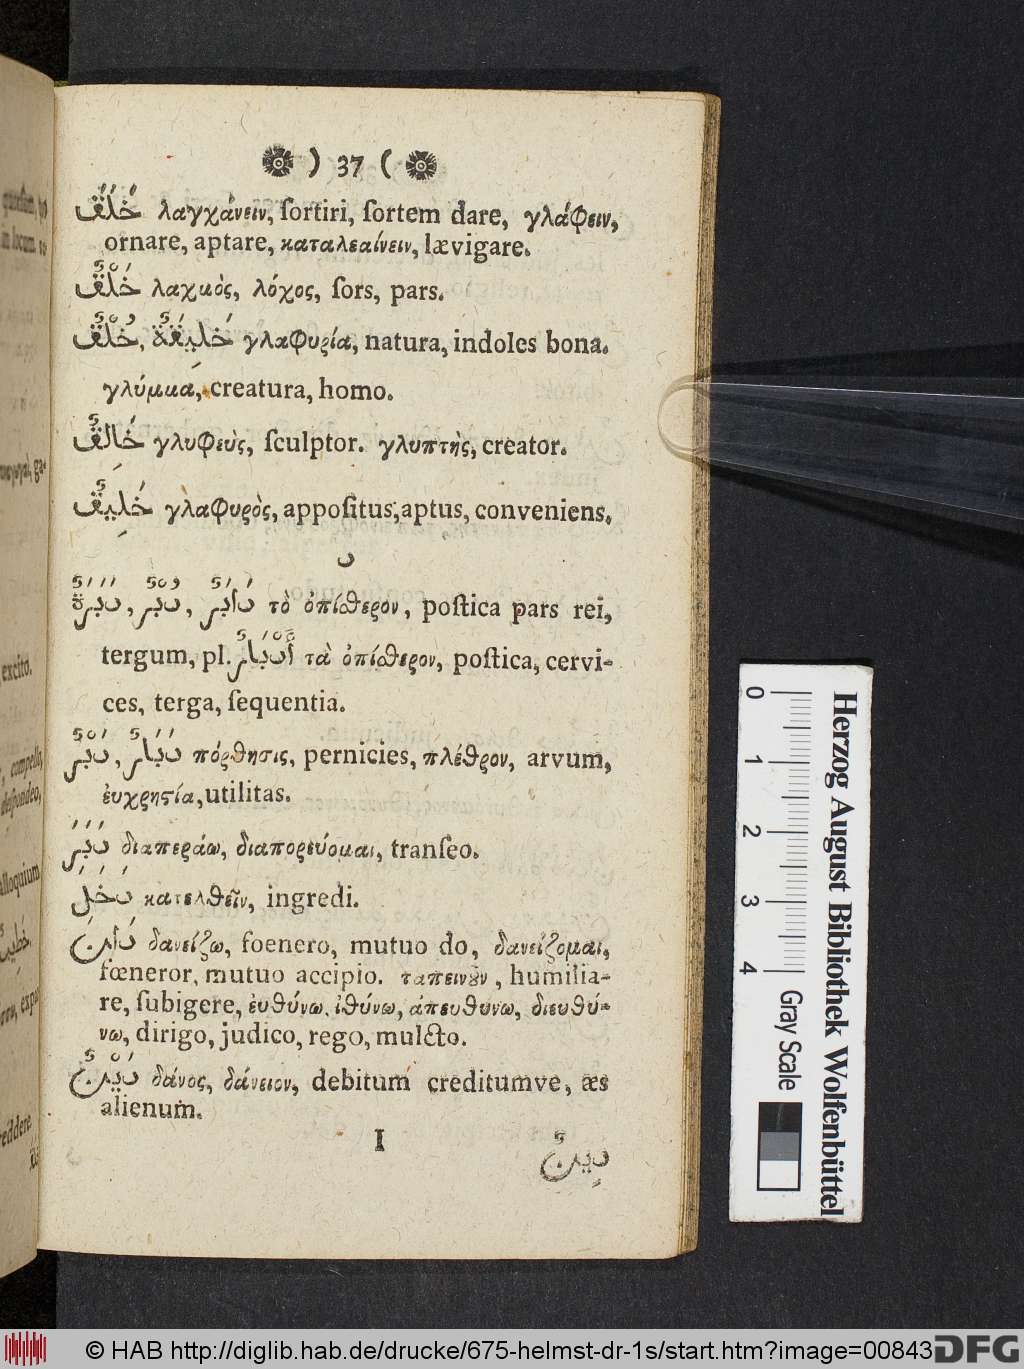 ) 37 (
خَلَقَ λαγχάνειν, ſortiri, ſortem dare, γλάφειν,
ornare, aptare, καταλεαίνειν, lævigare.
خَلْقٌ λαχμὸς, λόχος, ſors, pars.
خُلْقٌ, خَلِيقَةٌ γλαφυρία, natura, indoles bona.
γλύμμα, creatura, homo.
خَالِقٌ γλυφεὺς, ſculptor. γλυπτὴς, creator.
خَلِيقٌ γλαφυρὸς, appoſitus, aptus, conveniens.
د
دَابِرٌ, دُبْرٌ, دَبَرَةٌ τὸ ὀπίσθερον, poſtica pars rei,
tergum, pl. أَدْبَارٌ τὰ ὀπίσθερον, poſtica, cervi-
ces, terga, ſequentia.
دَبَارٌ, دَبْرٌ πόρθησις, pernicies, πλέθρον, arvum,
ἐυχρηστία, utilitas.
دَبَرَ διαπεράω, διαπορεύομαι, tranſeo.
دَخَلَ κατελθεῖν, ingredi.
دَانَ δανείζω, foenero, mutuo do, δανείζομαι,
fœneror, mutuo accipio. ταπεινοῦν, humilia-
re, ſubigere, ἐυθύνω, ἰθύνω, ἀπευθυνω, διευθύ-
νω, dirigo, judico, rego, mulcto.
دَيْنٌ δάνος, δάνειον, debitum creditumve, æs
alienum.
I
دِينٌ
excito.
compello,
deſpondeo,
alloquium
reddere
Herzog August Bibliothek Wolfenbüttel
0 1 2 3 4 Gray Scale
© HAB http://diglib.hab.de/drucke/675-helmst-dr-1s/start.htm?image=00843
DFG